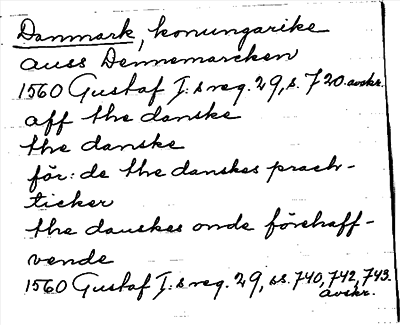 Danmark, konungarike
auss Dennemarcken
1560 Gustaf I:s reg. 29, s. 720. avskr.
aff the danske
the danske
för: de the danskes prach-
ticker
the danskes onde förehaff-
vende
1560 Gustaf I:s reg. 29, ss. 740, 742, 743.
avskr.